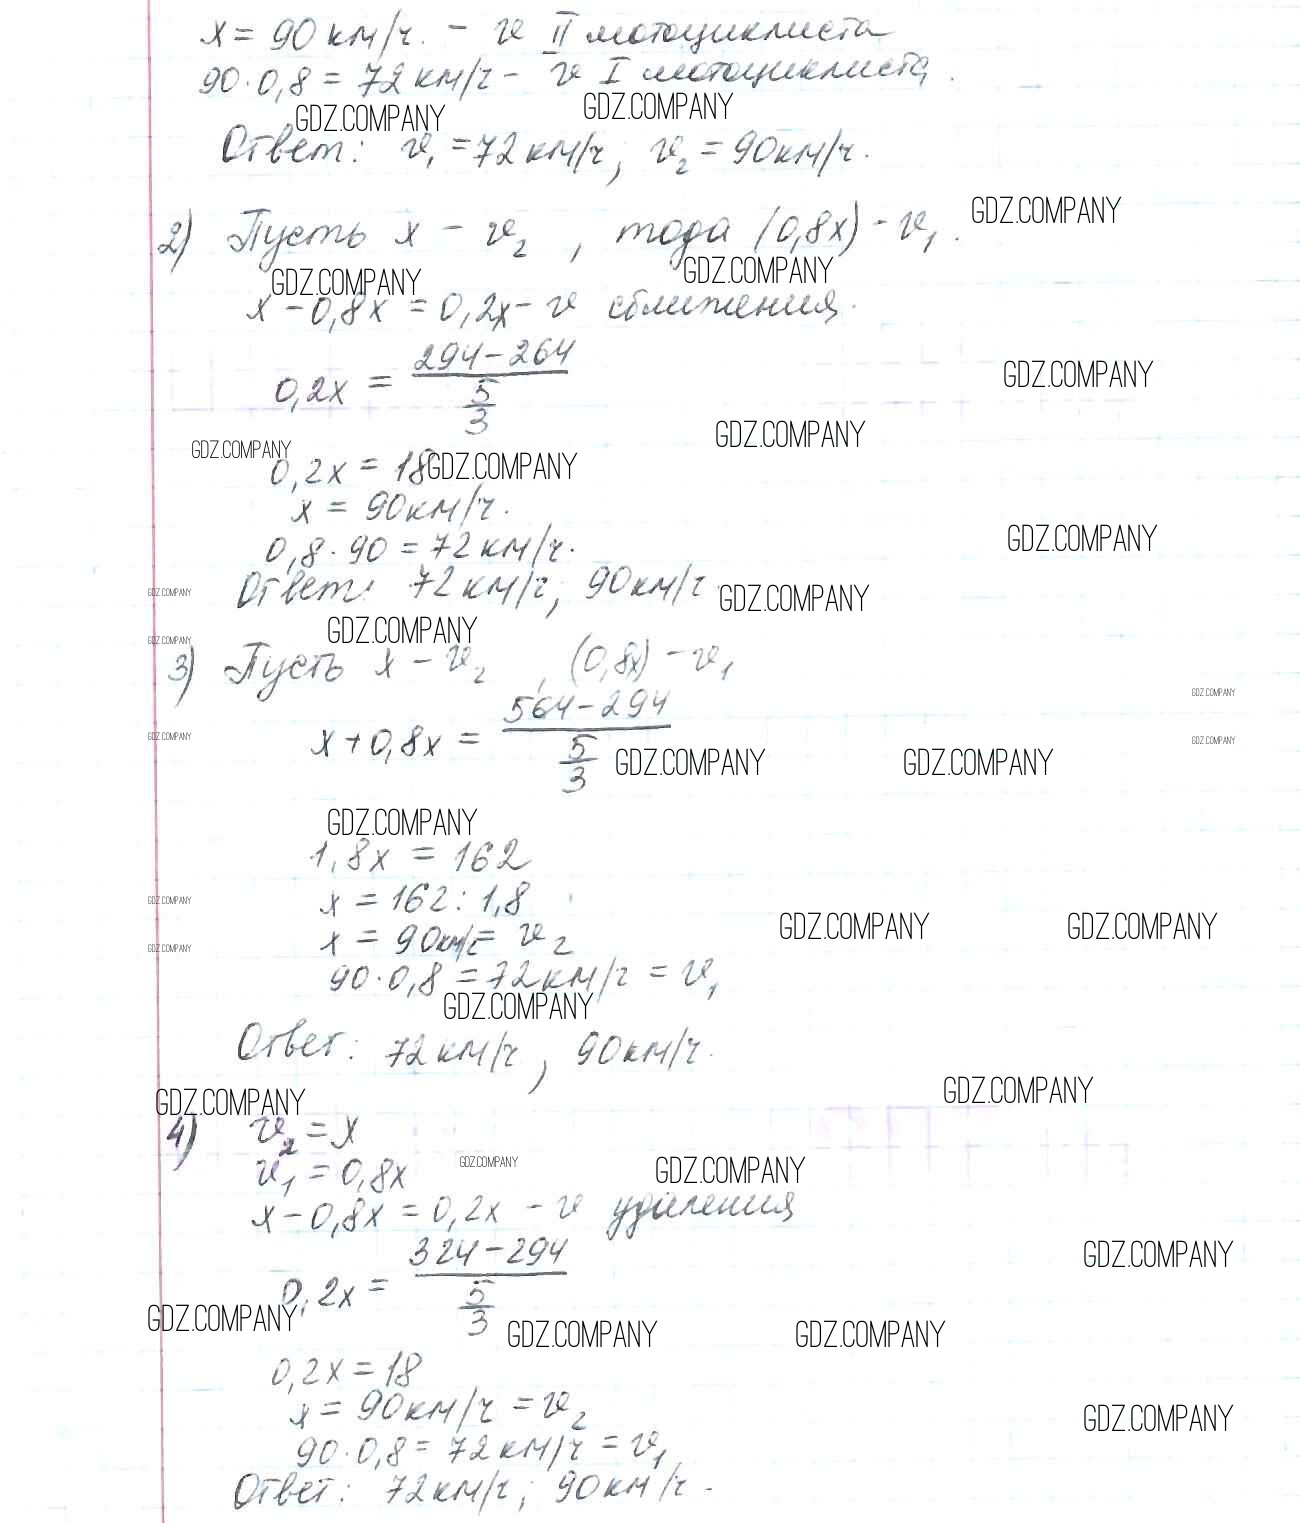 x = 90 км/ч. - v II мотоциклиста
90·0,8 = 72 км/ч - v I мотоциклиста.
GDZ.COMPANY GDZ.COMPANY
Ответ: v₁ = 72 км/ч; v₂ = 90км/ч.
GDZ.COMPANY
2) Пусть x - v₂, тода (0,8x) - v₁.
GDZ.COMPANY GDZ.COMPANY
x - 0,8x = 0,2x - v сближения.
0,2x = (294 - 264)/(5/3)
GDZ.COMPANY
GDZ.COMPANY
GDZ.COMPANY
0,2x = 18
GDZ.COMPANY
x = 90км/ч.
0,8·90 = 72 км/ч.
GDZ.COMPANY
Ответ: 72 км/ч; 90км/ч
GDZ.COMPANY GDZ.COMPANY
GDZ.COMPANY
GDZ.COMPANY
3) Пусть x - v₂, (0,8x) - v₁
GDZ.COMPANY
x + 0,8x = (564 - 294)/(5/3)
GDZ.COMPANY GDZ.COMPANY
GDZ.COMPANY GDZ.COMPANY
GDZ.COMPANY
1,8x = 162
x = 162 : 1,8
GDZ.COMPANY
GDZ.COMPANY GDZ.COMPANY
x = 90км/ч = v₂
GDZ.COMPANY
90·0,8 = 72 км/ч = v₁
GDZ.COMPANY
Ответ: 72 км/ч, 90км/ч.
GDZ.COMPANY
GDZ.COMPANY
4) v₂ = x
v₁ = 0,8x
GDZ.COMPANY GDZ.COMPANY
x - 0,8x = 0,2x - v удаления
0,2x = (324 - 294)/(5/3)
GDZ.COMPANY
GDZ.COMPANY
GDZ.COMPANY GDZ.COMPANY
0,2x = 18
x = 90км/ч = v₂
GDZ.COMPANY
90·0,8 = 72 км/ч = v₁
Ответ: 72 км/ч; 90км/ч.